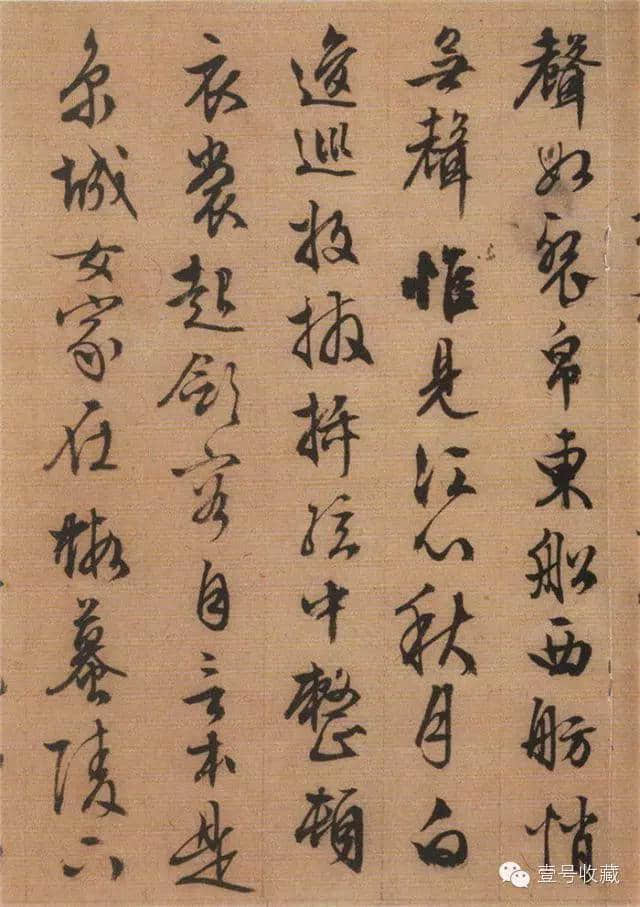 聲如裂帛東船西舫悄
無聲惟見江心秋月白
逡巡放撥插絃中整頓
衣裳起斂容自言本是
京城女家在蝦蟇陵下
壹号收藏